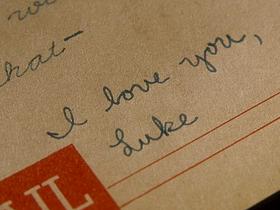 what—
I love you,
Luke
UL